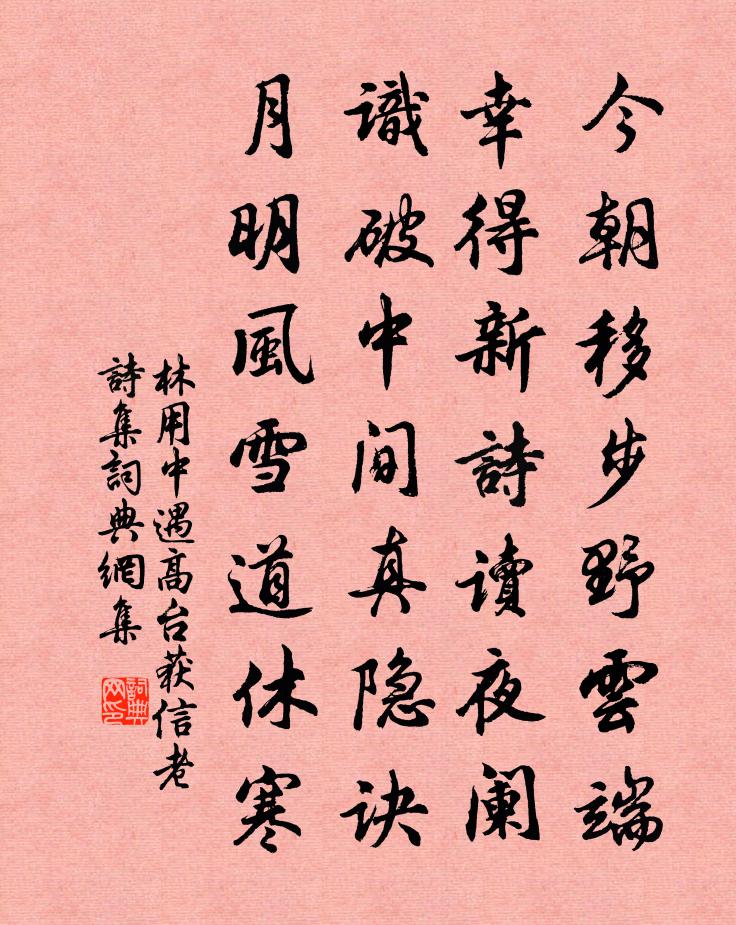 今朝移步野雲端
幸得新詩讀夜阑
識破中间真隐诀
月明風雪道休寒
林用中遇高台获信老
詩集詞典網集
詞典网印